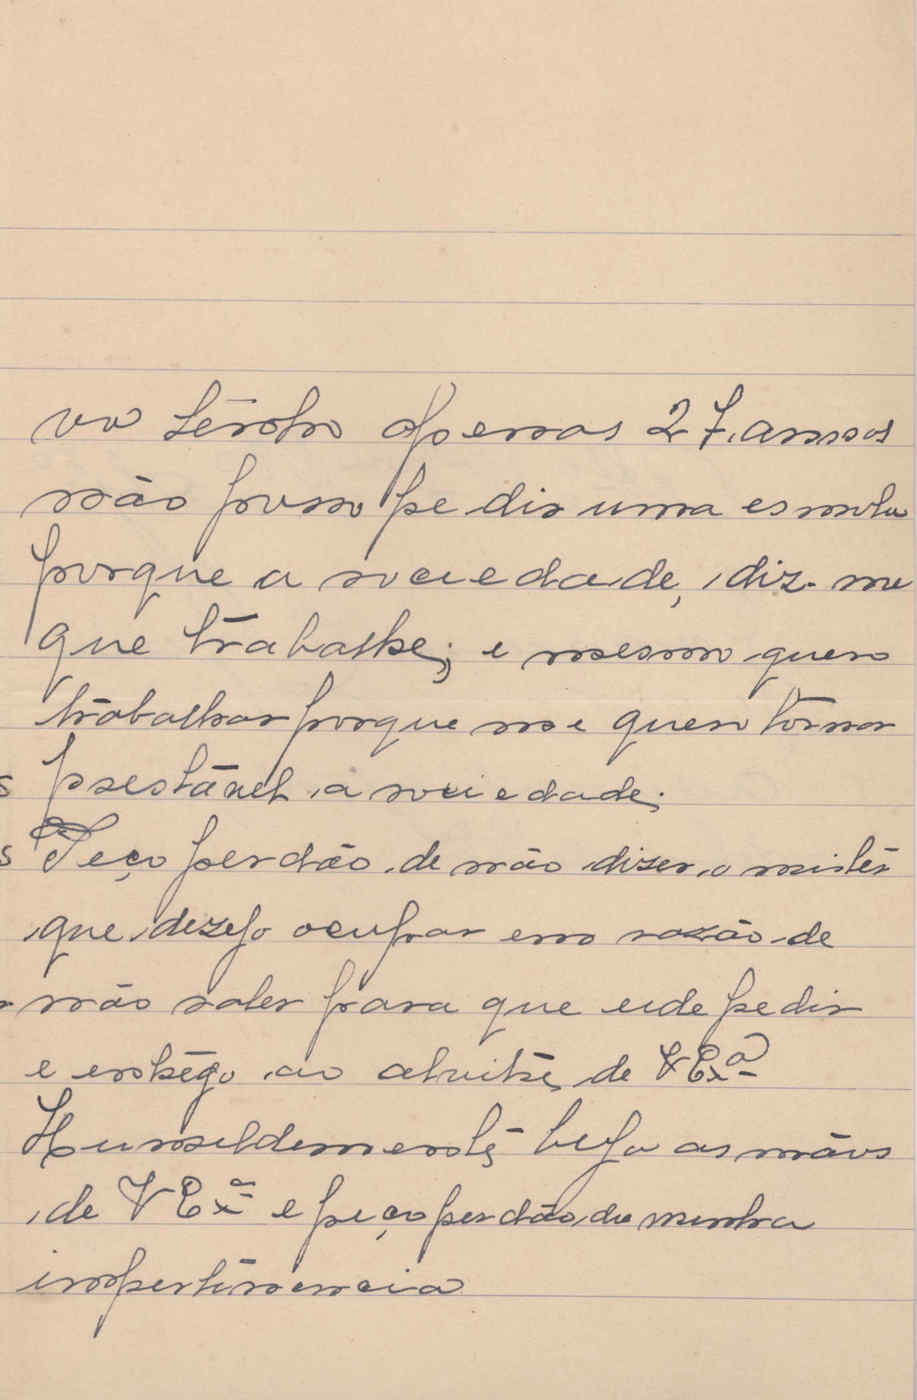 vo tenho apenas 27 annos
não posso pedir uma esmola
porque a sociedade, diz-me
que trabalhe; e mesmo quero
trabalhar porque me quero tornar
prestável a sociedade;
Peço perdão de não dizer o mistér
que dezejo ocupar em razão de
não saber para que eide pedir
e entrégo ao alvitre de VExª
Humildemente beijo as mãos
de VExª e peço perdão da minha
impertinencia